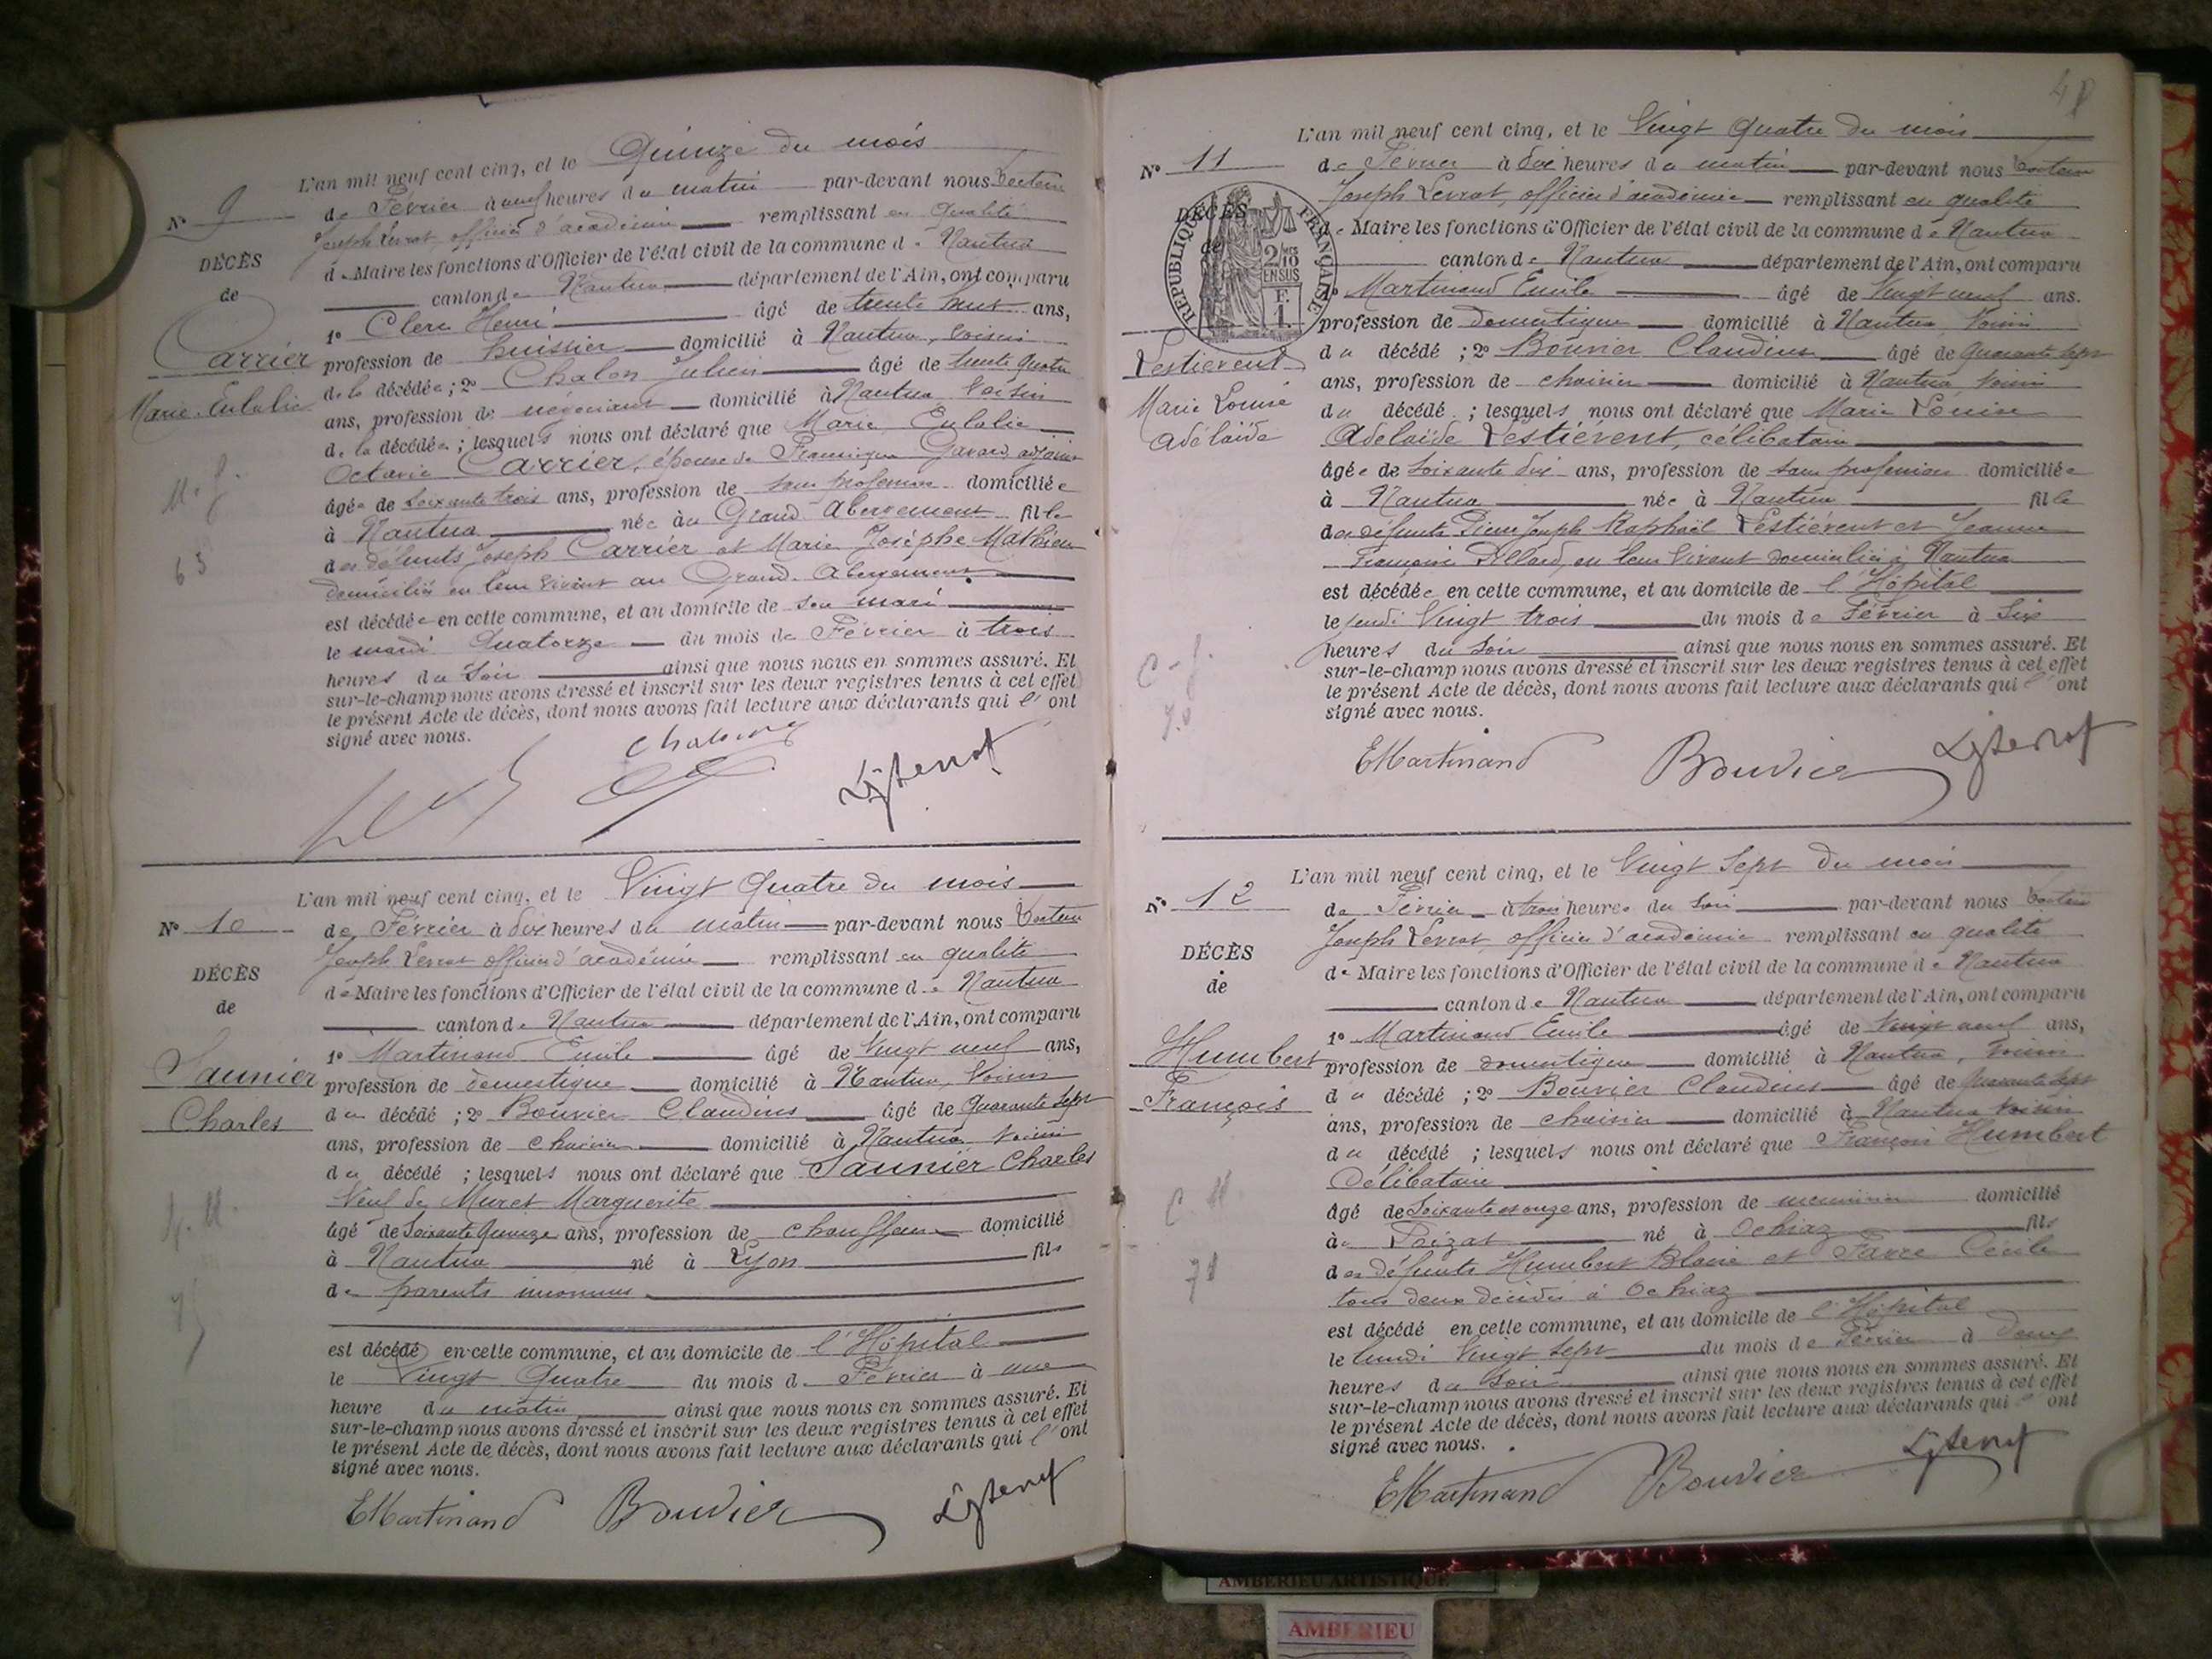 L'an mil neuf cent cinq, et le Quinze du mois
N° 9
de Février à neuf heures du matin par-devant nous Docteur
Joseph Levrat, officier d'académie remplissant en qualité
DÉCÈS
de Maire les fonctions d'Officier de l'état civil de la commune de Nantua
de
canton de Nantua département de l'Ain, ont comparu
1° Clerc Henri âgé de trente neuf ans,
Carrier
profession de huissier domicilié à Nantua, voisin
de la décédée ; 2° Chalon Julien âgé de trente quatre
Marie Eulalie
ans, profession de négociant domicilié à Nantua voisin
de la décédée ; lesquels nous ont déclaré que Marie Eulalie
Octavie Carrier, épouse de Gavard
M. f.
âgée de soixante trois ans, profession de sans profession domiciliée
à Nantua née au Grand Abergement fille
63
des défunts Joseph Carrier et Marie Josèphe Mathieu
domiciliés en leur vivant au Grand-Abergement
est décédée en cette commune, et au domicile de son mari
le mardi Quatorze du mois de Février à trois
heures du soir ainsi que nous nous en sommes assuré. Et
sur-le-champ nous avons dressé et inscrit sur les deux registres tenus à cet effet
le présent Acte de décès, dont nous avons fait lecture aux déclarants qui l'ont
signé avec nous.
L'an mil neuf cent cinq, et le Vingt Quatre du mois
N° 10
de Février à dix heures du matin par-devant nous Docteur
Joseph Levrat officier d'académie remplissant en qualité
DÉCÈS
de Maire les fonctions d'Officier de l'état civil de la commune de Nantua
de
canton de Nantua département de l'Ain, ont comparu
1° Martinand Emile âgé de Vingt neuf ans,
Saunier
profession de domestique domicilié à Nantua, voisin
Charles
du décédé ; 2° Bouvier Claudius âgé de Quarante Sept
ans, profession de chaisier domicilié à Nantua voisin
du décédé ; lesquels nous ont déclaré que Saunier Charles
Veuf de Muret Marguerite
âgé de Soixante Quinze ans, profession de chauffeur domicilié
à Nantua né à Lyon fils
de parents inconnus
75
est décédé en cette commune, et au domicile de l'Hôpital
le Vingt Quatre du mois de Février à une
heure du matin ainsi que nous nous en sommes assuré. Et
sur-le-champ nous avons dressé et inscrit sur les deux registres tenus à cet effet
le présent Acte de décès, dont nous avons fait lecture aux déclarants qui l'ont
signé avec nous.
EMartinand Bouvier
48
L'an mil neuf cent cinq, et le Vingt Quatre du mois
N° 11
de Février à dix heures du matin par-devant nous Docteur
Joseph Levrat, officier d'académie remplissant en qualité
DÉCÈS
de
RÉPUBLIQUE FRANÇAISE
2/10 EN SUS
F. 1
de Maire les fonctions d'Officier de l'état civil de la commune de Nantua
canton de Nantua département de l'Ain, ont comparu
1° Martinand Emile âgé de Vingt neuf ans.
profession de domestique domicilié à Nantua voisin
Lestiévent
du décédé ; 2° Bouvier Claudius âgé de Quarante Sept
ans, profession de chaisier domicilié à Nantua voisin
Marie Louise
du décédé ; lesquels nous ont déclaré que Marie Louise
Adélaïde
Adélaïde Lestiévent, célibataire
âgée de Soixante dix ans, profession de sans profession domiciliée
à Nantua née à Nantua fille
des défunts Pierre Joseph Raphaël Lestiévent et Jeanne
en leur vivant domiciliés à Nantua
est décédée en cette commune, et au domicile de l'Hôpital
le jeudi Vingt trois du mois de Février à Six
C - f.
heures du soir ainsi que nous nous en sommes assuré. Et
sur-le-champ nous avons dressé et inscrit sur les deux registres tenus à cet effet
le présent Acte de décès, dont nous avons fait lecture aux déclarants qui l'ont
70
signé avec nous.
EMartinand Bouvier
L'an mil neuf cent cinq, et le Vingt Sept du mois
N° 12
de Février à trois heures du soir par-devant nous Docteur
Joseph Levrat, officier d'académie remplissant en qualité
DÉCÈS
de Maire les fonctions d'Officier de l'état civil de la commune de Nantua
de
canton de Nantua département de l'Ain, ont comparu
1° Martinand Emile âgé de Vingt neuf ans,
Humbert
profession de domestique domicilié à Nantua, voisin
François
du décédé ; 2° Bouvier Claudius âgé de Quarante Sept
ans, profession de chaisier domicilié à Nantua voisin
du décédé ; lesquels nous ont déclaré que François Humbert
Célibataire
C. M.
âgé de Soixante et onze ans, profession de menuisier domicilié
au Poizat né à Ochiaz fils
71
des défunts Humbert Blaise et Favre Cécile
tous deux décédés à Ochiaz
est décédé en cette commune, et au domicile de l'Hôpital
le lundi Vingt Sept du mois de Février à deux
heures du soir ainsi que nous nous en sommes assuré. Et
sur-le-champ nous avons dressé et inscrit sur les deux registres tenus à cet effet
le présent Acte de décès, dont nous avons fait lecture aux déclarants qui l'ont
signé avec nous.
EMartinand Bouvier
AMBERIEU ARTISTIQUE
AMBERIEU